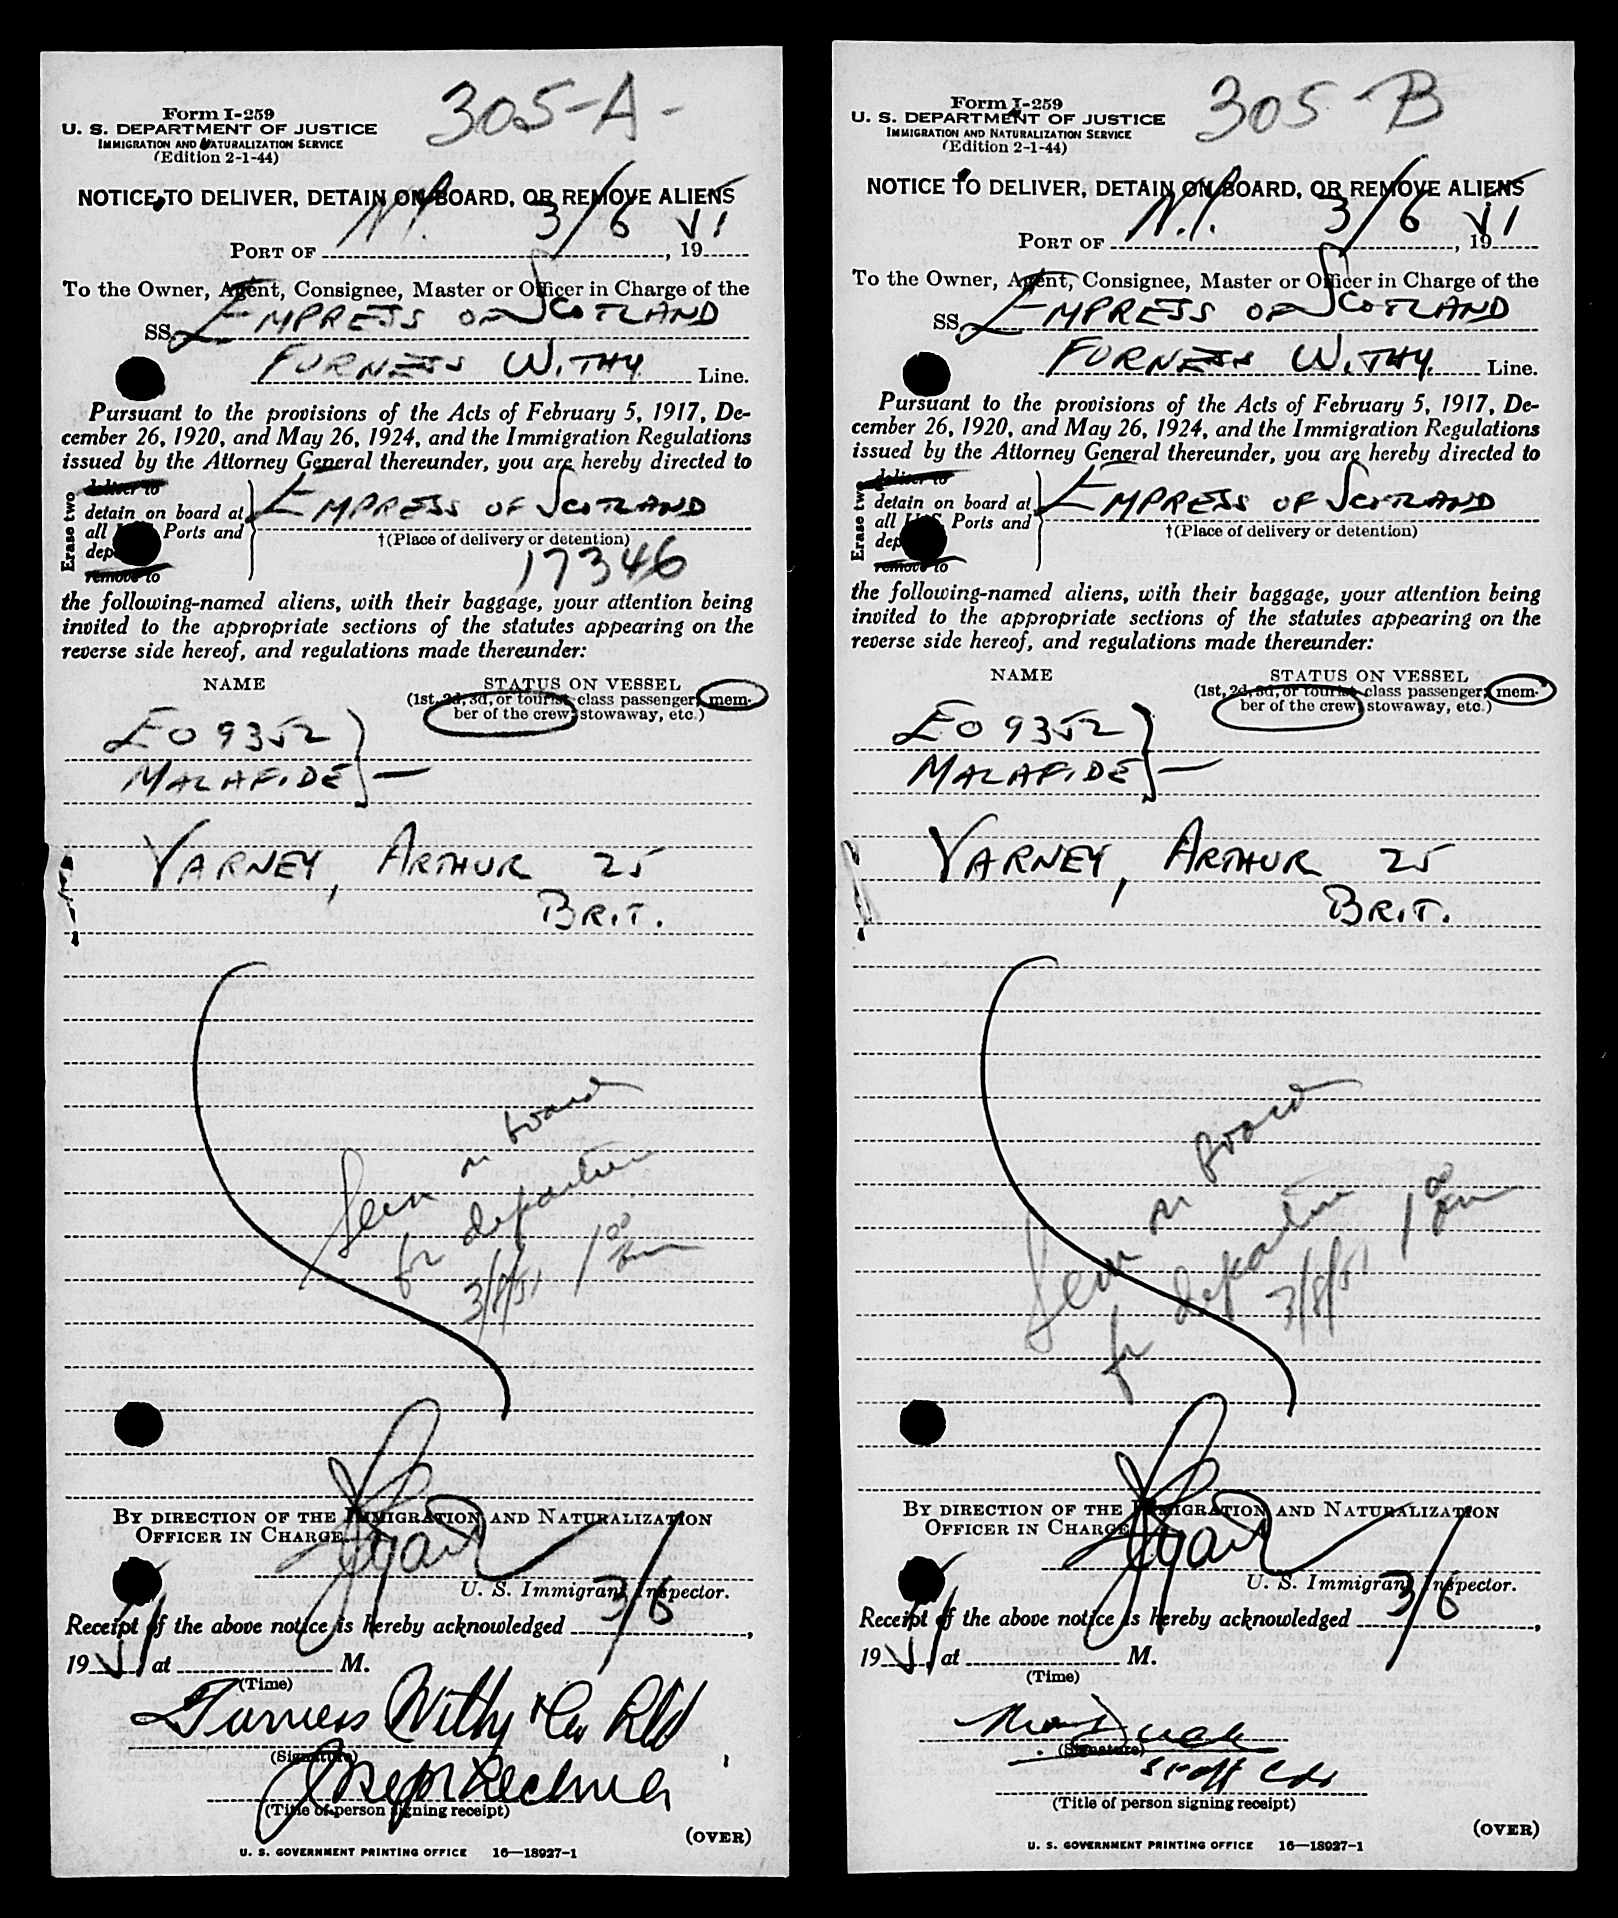 305-A-
Form I-259
U. S. DEPARTMENT OF JUSTICE
IMMIGRATION AND NATURALIZATION SERVICE
(Edition 2-1-44)
NOTICE TO DELIVER, DETAIN ON BOARD, OR REMOVE ALIENS
PORT OF N.Y. 3/6, 1951
To the Owner, Agent, Consignee, Master or Officer in Charge of the
SS EMPRESS OF SCOTLAND
FURNESS WITHY Line.
Pursuant to the provisions of the Acts of February 5, 1917, De-
cember 26, 1920, and May 26, 1924, and the Immigration Regulations
issued by the Attorney General thereunder, you are hereby directed to
Erase two
deliver to
detain on board at
all Ports and
remove to
EMPRESS OF SCOTLAND
†(Place of delivery or detention)
17346
the following-named aliens, with their baggage, your attention being
invited to the appropriate sections of the statutes appearing on the
reverse side hereof, and regulations made thereunder:
NAME STATUS ON VESSEL
(1st, 2d, 3d, or tourist class passenger; mem-
ber of the crew; stowaway, etc.)
EO 9352
MALAFIDE } —
VARNEY, ARTHUR 25
BRIT.
Seen on board
for departure
3/8/51 1 00 am
BY DIRECTION OF THE IMMIGRATION AND NATURALIZATION
OFFICER IN CHARGE
U. S. Immigrant Inspector.
Receipt of the above notice is hereby acknowledged 3/6,
1951, at M.
(Time)
Furness Withy & Co Ltd
(Signature)
(Title of person signing receipt)
(OVER)
U. S. GOVERNMENT PRINTING OFFICE 16—18927-1
305-B
Form I-259
U. S. DEPARTMENT OF JUSTICE
IMMIGRATION AND NATURALIZATION SERVICE
(Edition 2-1-44)
NOTICE TO DELIVER, DETAIN ON BOARD, OR REMOVE ALIENS
PORT OF N.Y. 3/6, 1951
To the Owner, Agent, Consignee, Master or Officer in Charge of the
SS EMPRESS OF SCOTLAND
FURNESS WITHY Line.
Pursuant to the provisions of the Acts of February 5, 1917, De-
cember 26, 1920, and May 26, 1924, and the Immigration Regulations
issued by the Attorney General thereunder, you are hereby directed to
Erase two
deliver to
detain on board at
all U.S. Ports and
remove to
EMPRESS OF SCOTLAND
†(Place of delivery or detention)
the following-named aliens, with their baggage, your attention being
invited to the appropriate sections of the statutes appearing on the
reverse side hereof, and regulations made thereunder:
NAME STATUS ON VESSEL
(1st, 2d, 3d, or tourist class passenger; mem-
ber of the crew; stowaway, etc.)
EO 9352
MALAFIDE } —
VARNEY, ARTHUR 25
BRIT.
Seen on board
for departure
3/8/51 1 00 am
BY DIRECTION OF THE IMMIGRATION AND NATURALIZATION
OFFICER IN CHARGE
U. S. Immigrant Inspector.
Receipt of the above notice is hereby acknowledged 3/6,
1951, at M.
(Time)
(Signature)
Staff Cdr
(Title of person signing receipt)
(OVER)
U. S. GOVERNMENT PRINTING OFFICE 16—18927-1